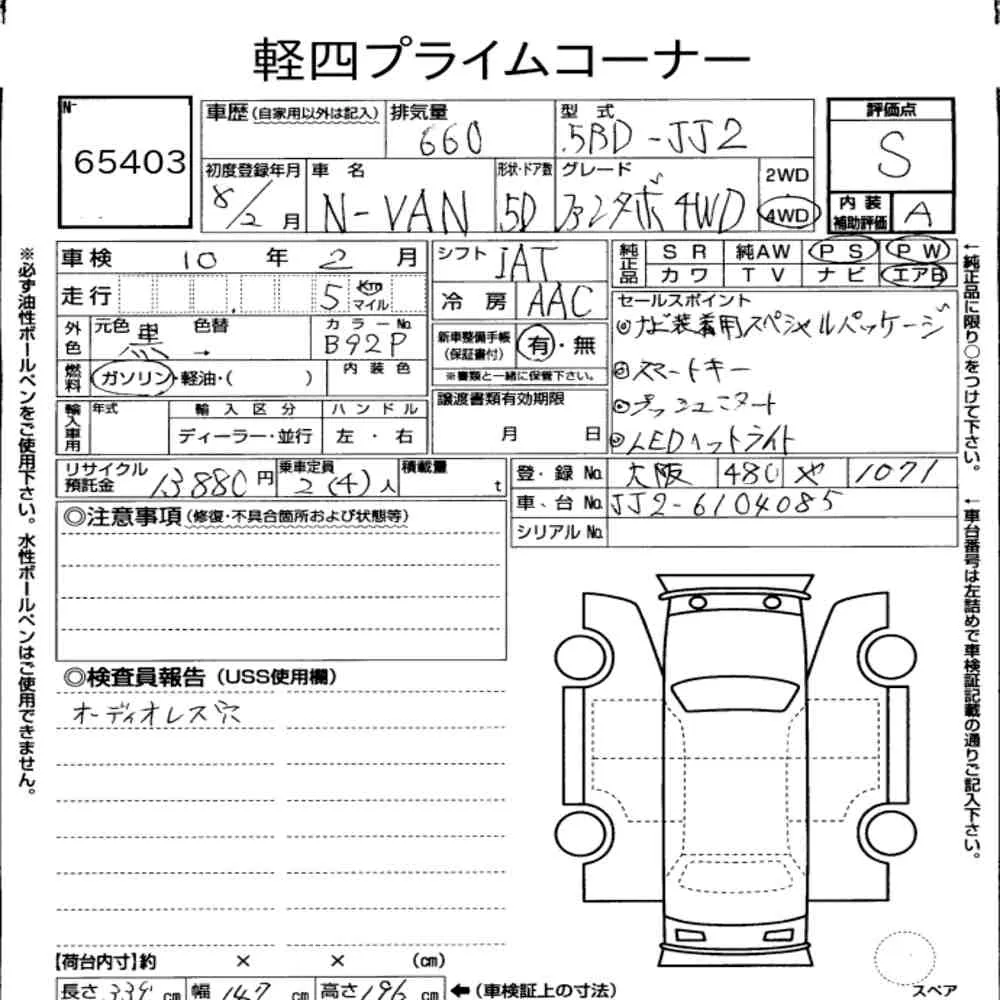 軽四プライムコーナー
№
65403
車歴(自家用以外は記入) 排気量 660 型式 5BD-JJ2 評価点 S
初度登録年月 8/2月 車名 N-VAN 形状・ドア数 5D グレード ファンターボ 4WD 2WD 4WD 内装補助評価 A
車検 10年 2月 シフト IAT 純正品 SR 純AW PS PW
カワ TV ナビ エアB
走行 5 km マイル 冷房 AAC セールスポイント
外色 元色 黒 色替 → カラーNo. B92P 新車整備手帳(保証書付) 有・無
※書類と一緒に保管下さい。
◎ナビ装着用スペシャルパッケージ
◎スマートキー
◎プッシュスタート
◎LEDヘッドライト
燃料 ガソリン・軽油・( ) 内装色
譲渡書類有効期限 月 日
輸入車用 年式 輸入区分 ハンドル
ディーラー・並行 左・右
リサイクル預託金 13880円 乗車定員 2(4)人 積載量 t
登録No. 大阪 480 や 1071
車台No. JJ2-6104085
シリアルNo.
◎注意事項(修復・不具合箇所および状態等)
◎検査員報告(USS使用欄)
オーディオレス穴
【荷台内寸】約 × × (cm)
長さ 339 cm 幅 147 cm 高さ 196 cm ←(車検証上の寸法)
スペア
※必ず油性ボールペンをご使用下さい。水性ボールペンはご使用できません。
←純正品に限り○をつけて下さい。
←車台番号は左詰めで車検証記載の通りご記入下さい。